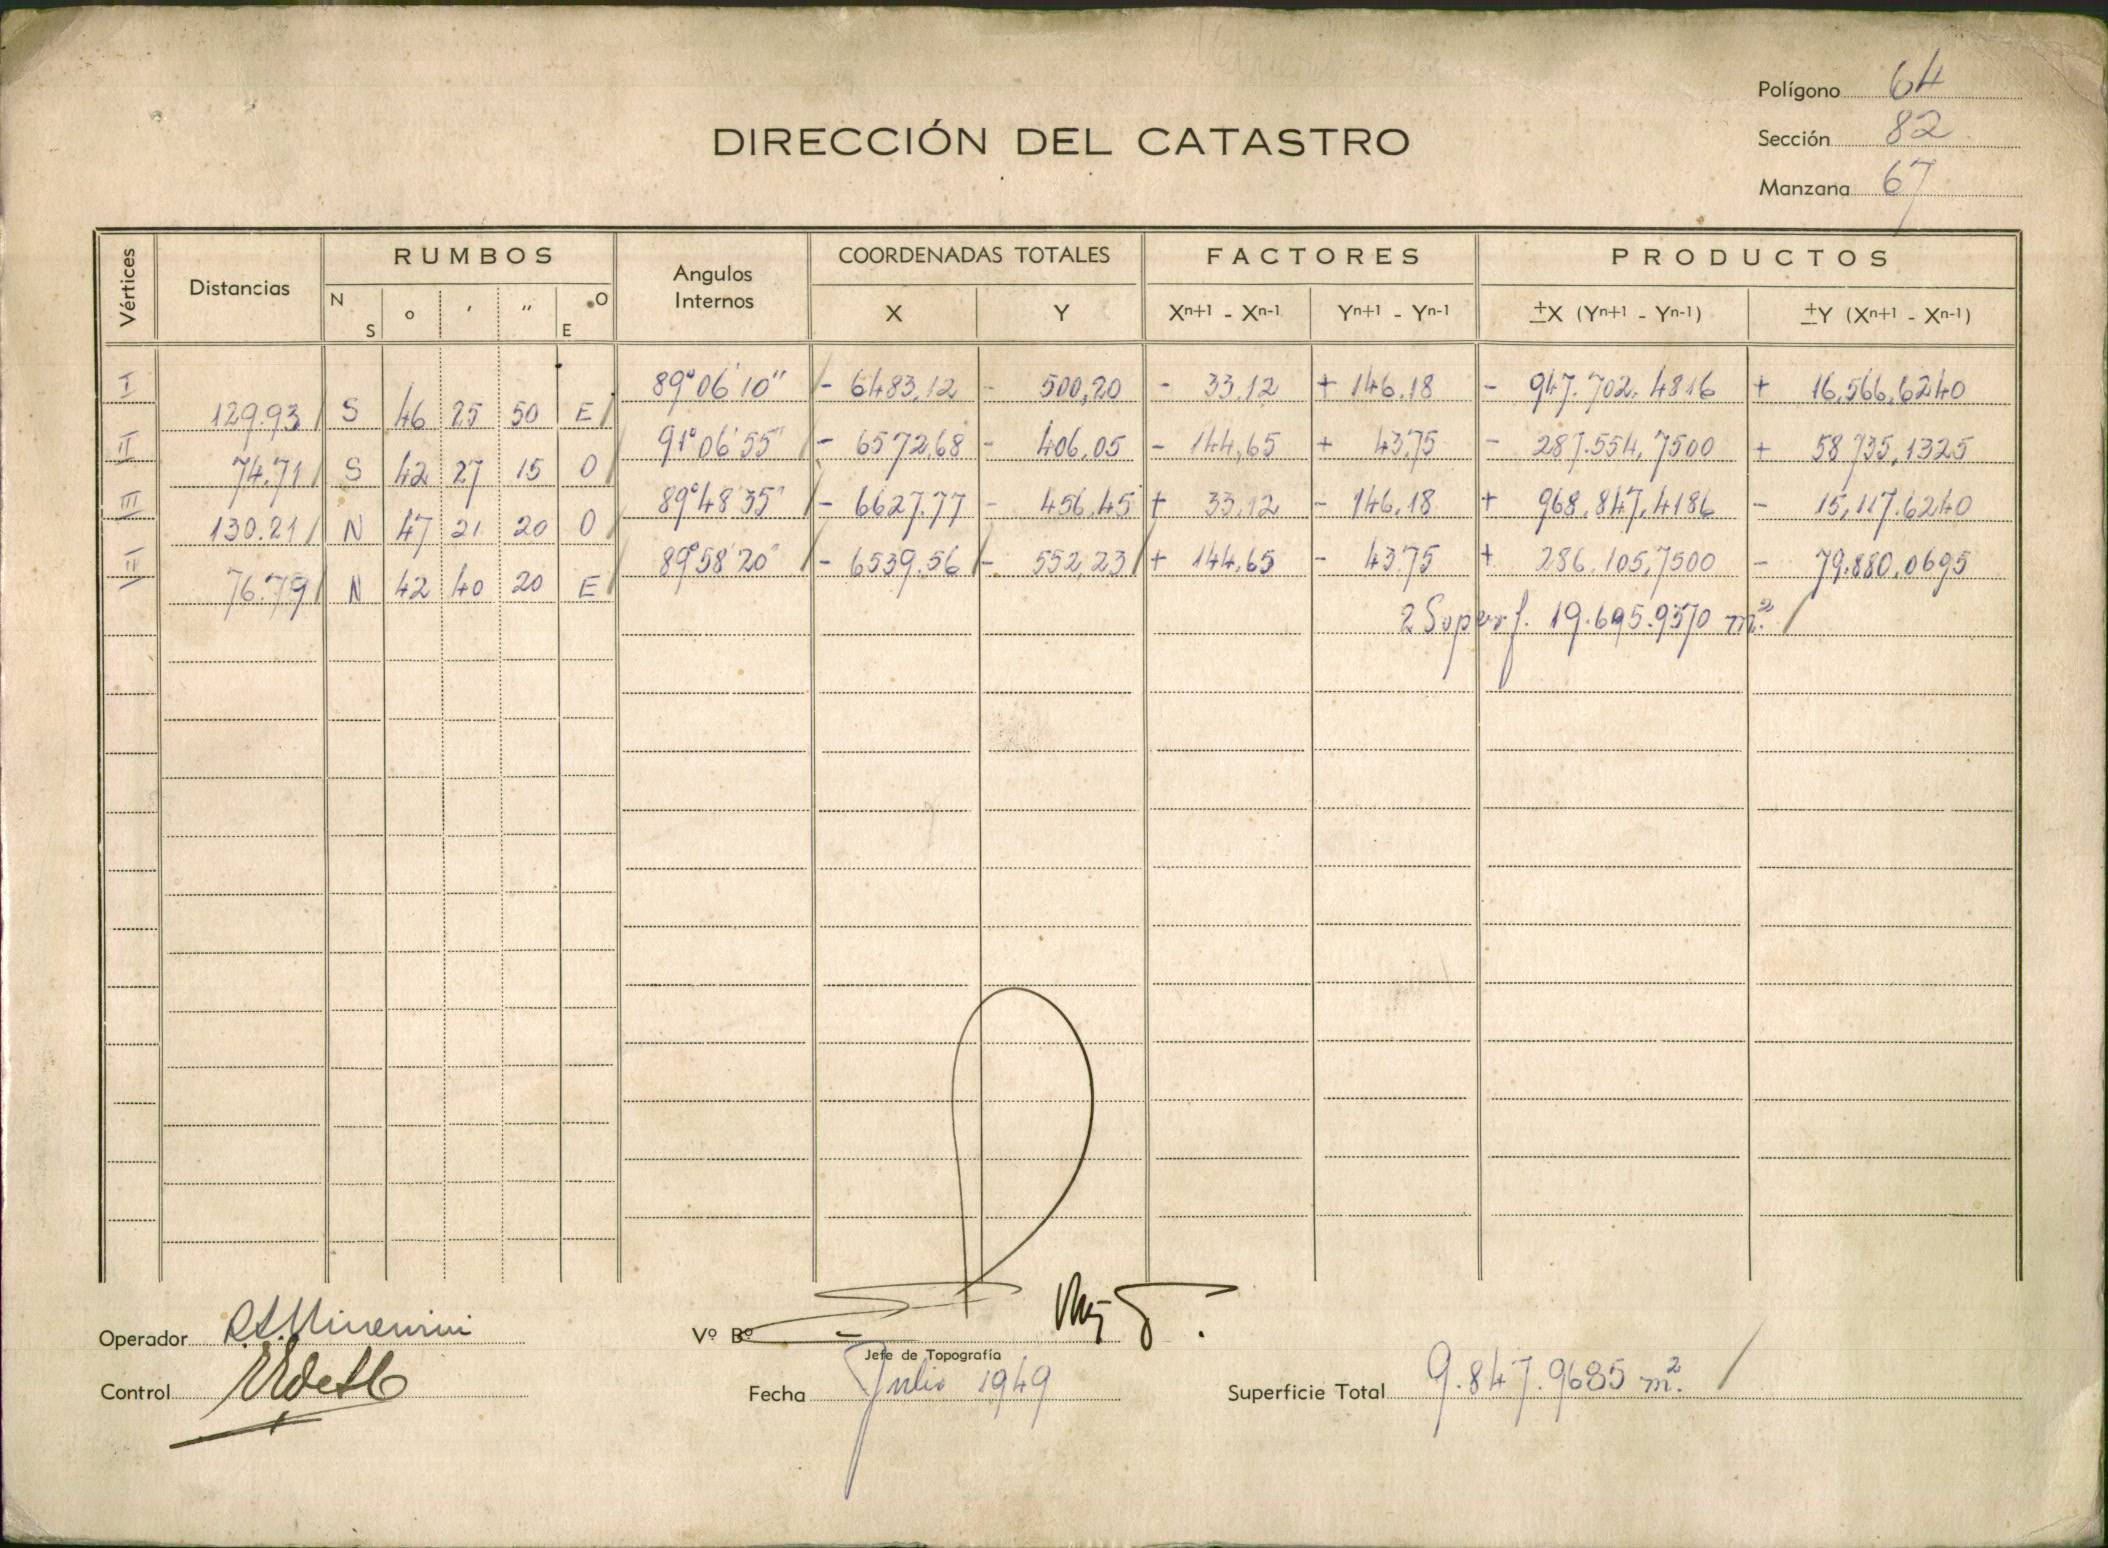 Polígono 64
DIRECCIÓN DEL CATASTRO
Sección 82
Manzana 67
Vértices Distancias RUMBOS Angulos Internos COORDENADAS TOTALES FACTORES PRODUCTOS
N S ° ′ ″ O E X Y Xn+1 - Xn-1 Yn+1 - Yn-1 ±X (Yn+1 - Yn-1) ±Y (Xn+1 - Xn-1)
I 89°06'10" - 6483,12 - 500,20 - 33,12 + 146,18 - 947.702,4816 + 16,566,6240
129.93 S 46 25 50 E
II 91°06'55" - 6572,68 - 406,05 - 144,65 + 43,75 - 287.554,7500 + 58735,1325
74,71 S 42 27 15 O
III 89°48'35" - 6627,77 - 456,45 + 33,12 - 146,18 + 968.847,4186 - 15,117.6240
130.21 N 47 21 20 O
IV 89°58'20" - 6539.56 - 552,23 + 144,65 - 43,75 + 286.105,7500 - 79.880,0695
76.79 N 42 40 20 E
2 Superf. 19.695.9370 m².
Operador
Vº Bº
Jefe de Topografía
Control
Fecha Julio 1949
Superficie Total 9.847.9685 m².